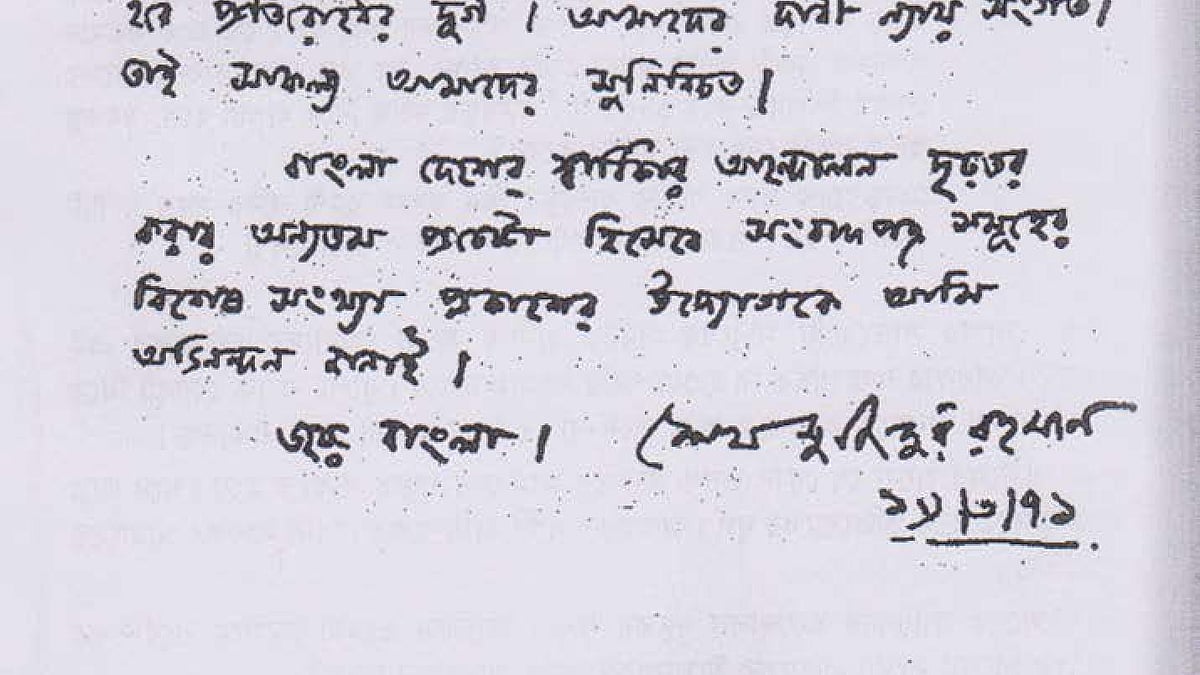 হবে প্রতিরোধের দুর্গ। আমাদের দাবী ন্যায় সংগত।
তাই সাফল্য আমাদের সুনিশ্চিত।
বাংলা দেশের স্বাধিকার আন্দোলন দৃঢ়তর
করার অন্যতম প্রচেষ্টা হিসেবে সংবাদপত্র সমূহের
বিশেষ সংখ্যা প্রকাশের উদ্যোগকে আমি
অভিনন্দন জানাই।
জয় বাংলা। শেখ মুজিবুর রহমান
৭১